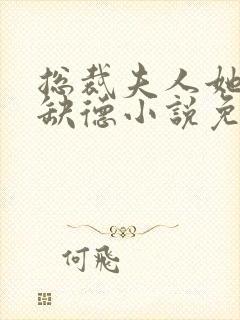 总裁夫人她
缺德小說免
何飛